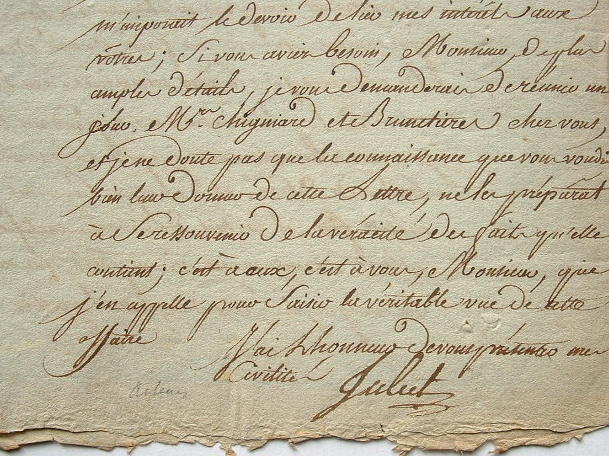 m'imposait le devoir de lier mes intérêts aux
vôtres; Si vous aviez besoin, Monsieur, de plus
amples détails, je vous demanderais de réunir un
jour Mrs. Chignard et Brunetières chez vous,
et je ne doute pas que la connaissance que vous voudrés
bien leur donner de cette Lettre, ne les préparât
à Se ressouvenir de la véracité des faits qu'elle
contient; c'est à eux, c'est à vous, Monsieur, que
j'en appelle pour Saisir la véritable vue de cette
affaire
J'ai L'honneur de vous présenter mes
Civilités